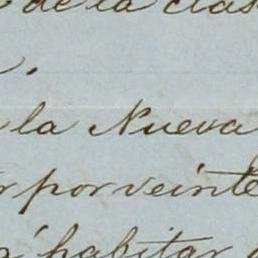 de la clas
la Nueva
por veinte
habitar